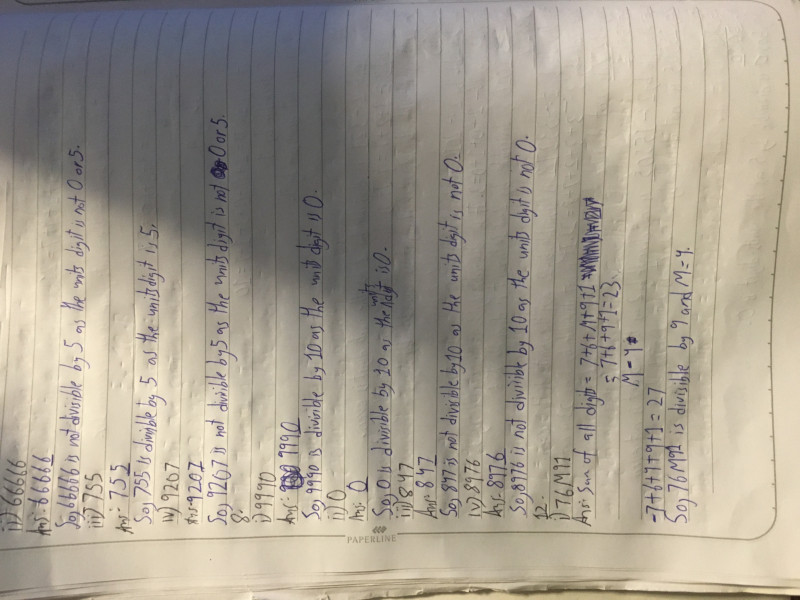 ii) 66666
Ans:- 66666
So, 66666 is not divisible by 5 as the units digit is not 0 or 5.
iii) 755
Ans:- 755
So, 755 is divisible by 5 as the units digit is 5.
iv) 9207
Ans:- 9207
So, 9207 is not divisible by 5 as the units digit is not 0 or 5.
8.
i) 9990
Ans:- 9990
So, 9990 is divisible by 10 as the units digit is 0.
ii) 0
Ans:- 0
So, 0 is divisible by 10 as the units digit is 0.
iii) 847
Ans:- 847
So, 847 is not divisible by 10 as the units digit is not 0.
iv) 8976
Ans:- 8976
So, 8976 is not divisible by 10 as the units digit is not 0.
12.
i) 76M91
Ans:- Sum of all digits = 7+6+M+9+1
= 7+6+9+1=23.
M = 4
-7+6+4+9+1 = 27
So, 76M91 is divisible by 9 and M=4.
PAPERLINE